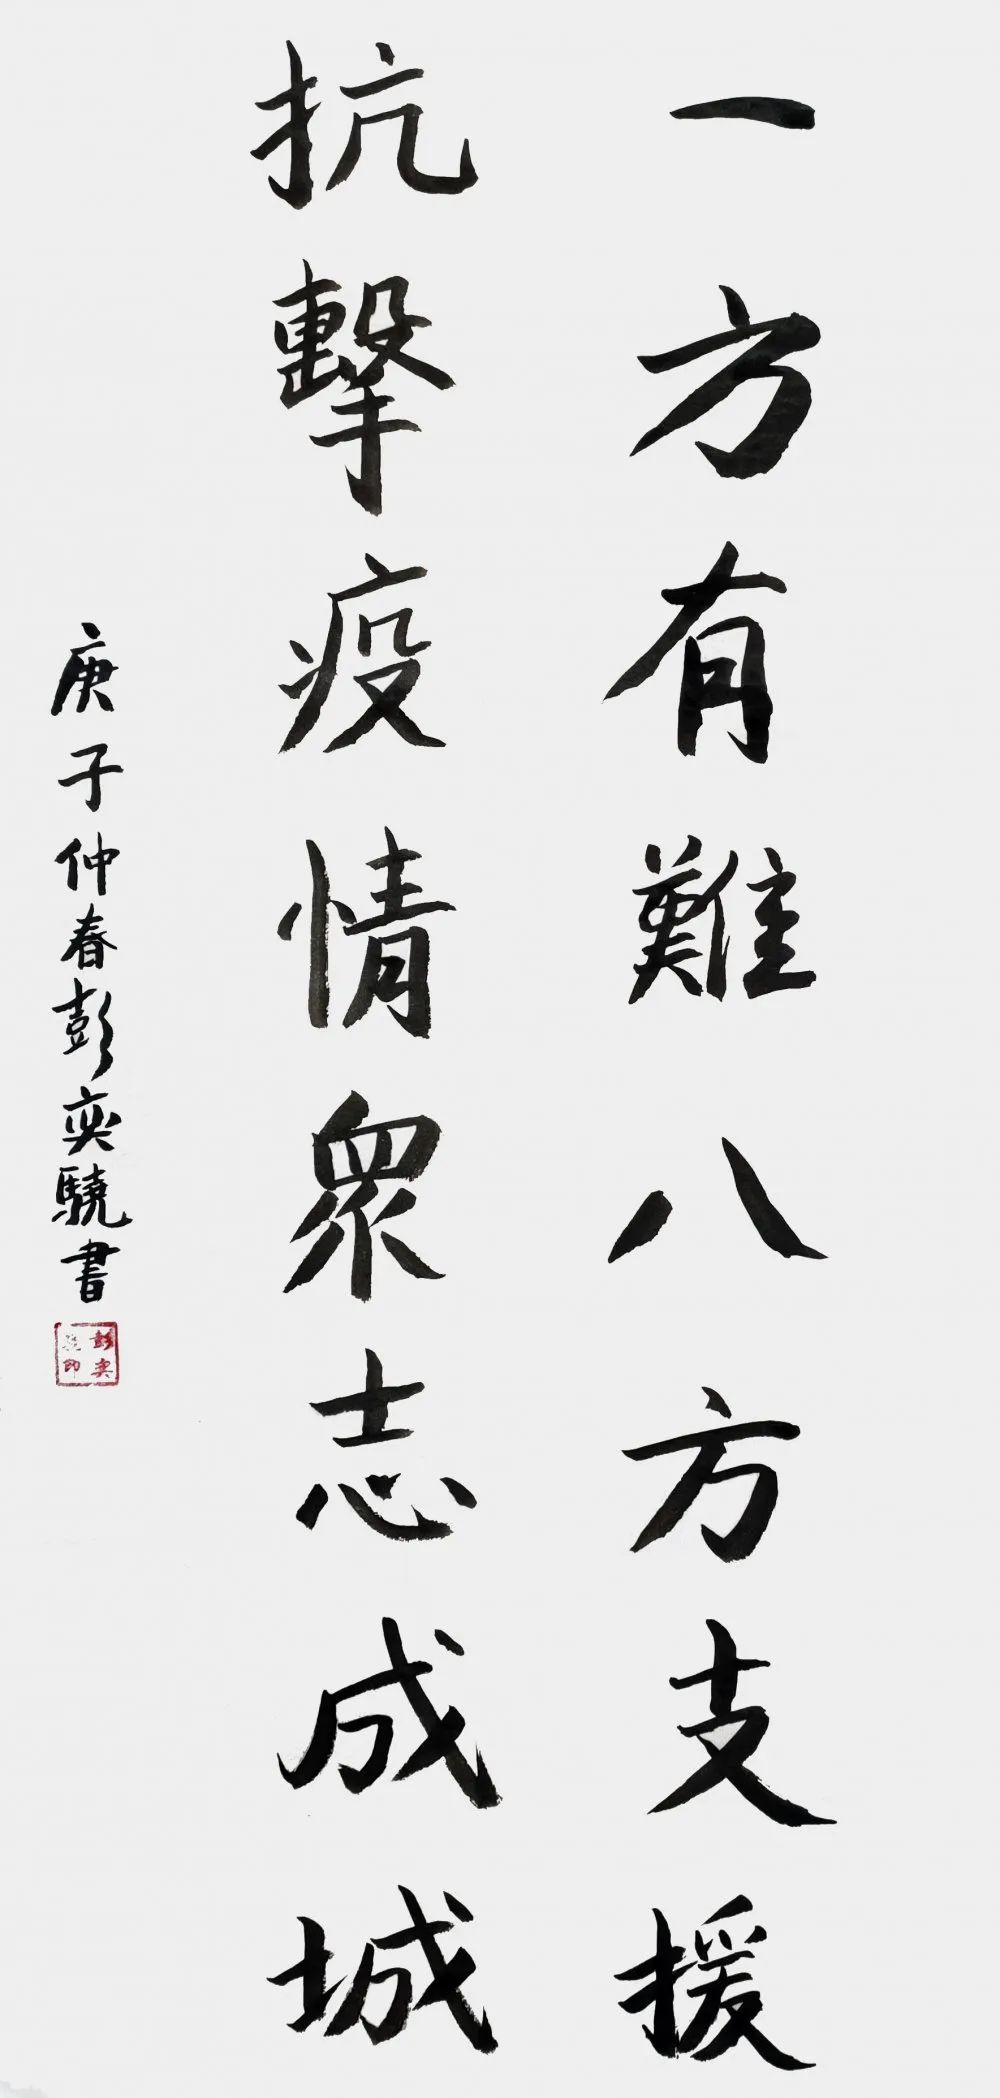 一方有難八方支援
抗擊疫情眾志成城
庚子仲春彭奕驍書
彭奕
印